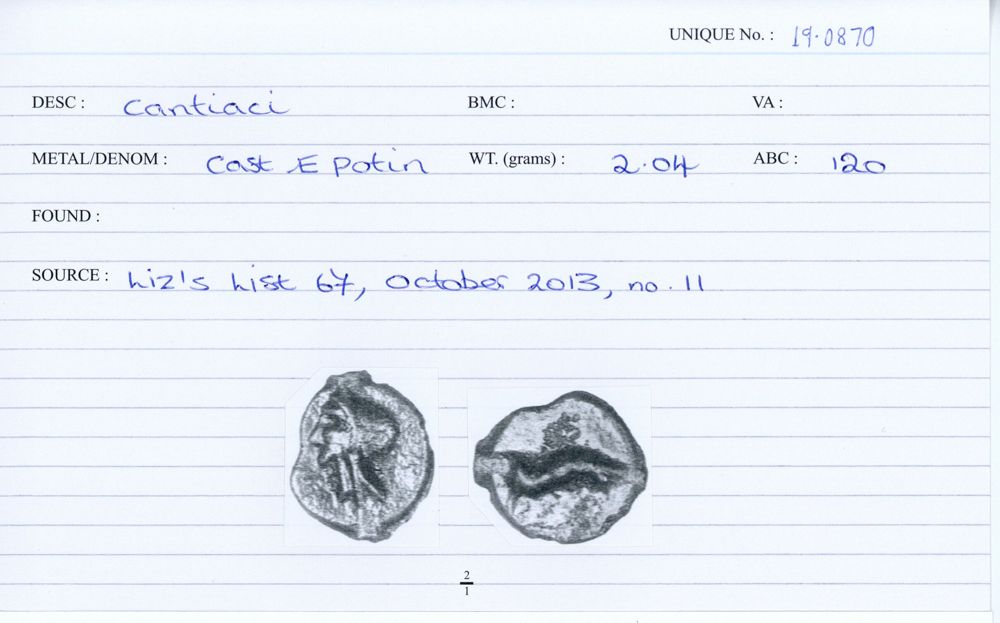 UNIQUE No. : 19.0870
DESC : Cantiaci BMC : VA :
METAL/DENOM : Cast Æ potin WT. (grams) : 2.04 ABC : 120
FOUND :
SOURCE : Liz's List 67, October 2013, no. 11
2
1